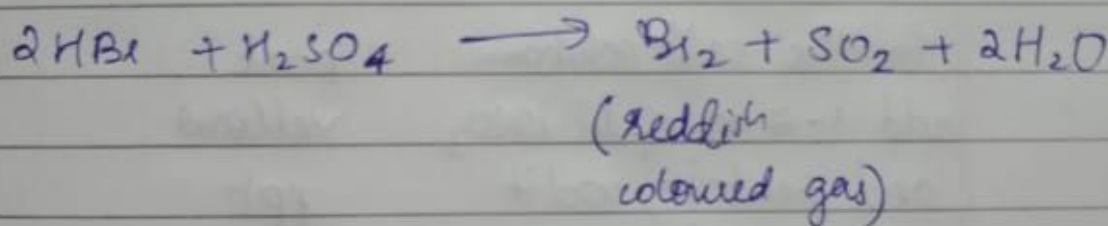 2HBr + H₂SO₄ ⟶ Br₂ + SO₂ + 2H₂O
(reddish
coloured gas)